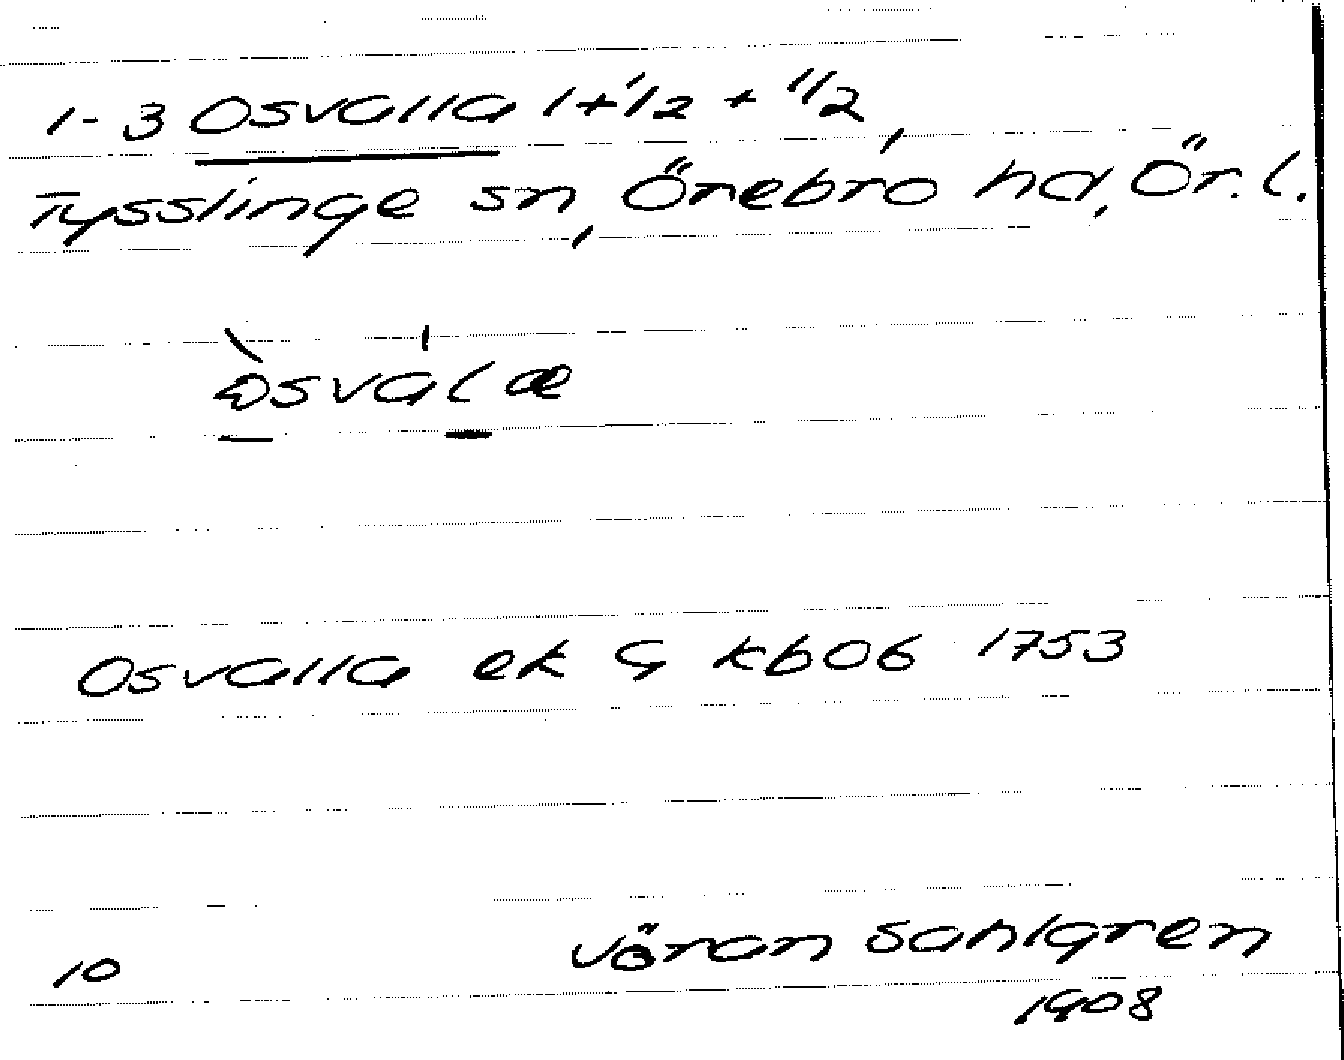 1-3 Osvalla 1+1/2 + 1/2,
Tysslinge sn, Örebro hd, Ör. l.
òsválæ
Osvalla ek G kb06 1753
10 Jöran Sahlgren
1908